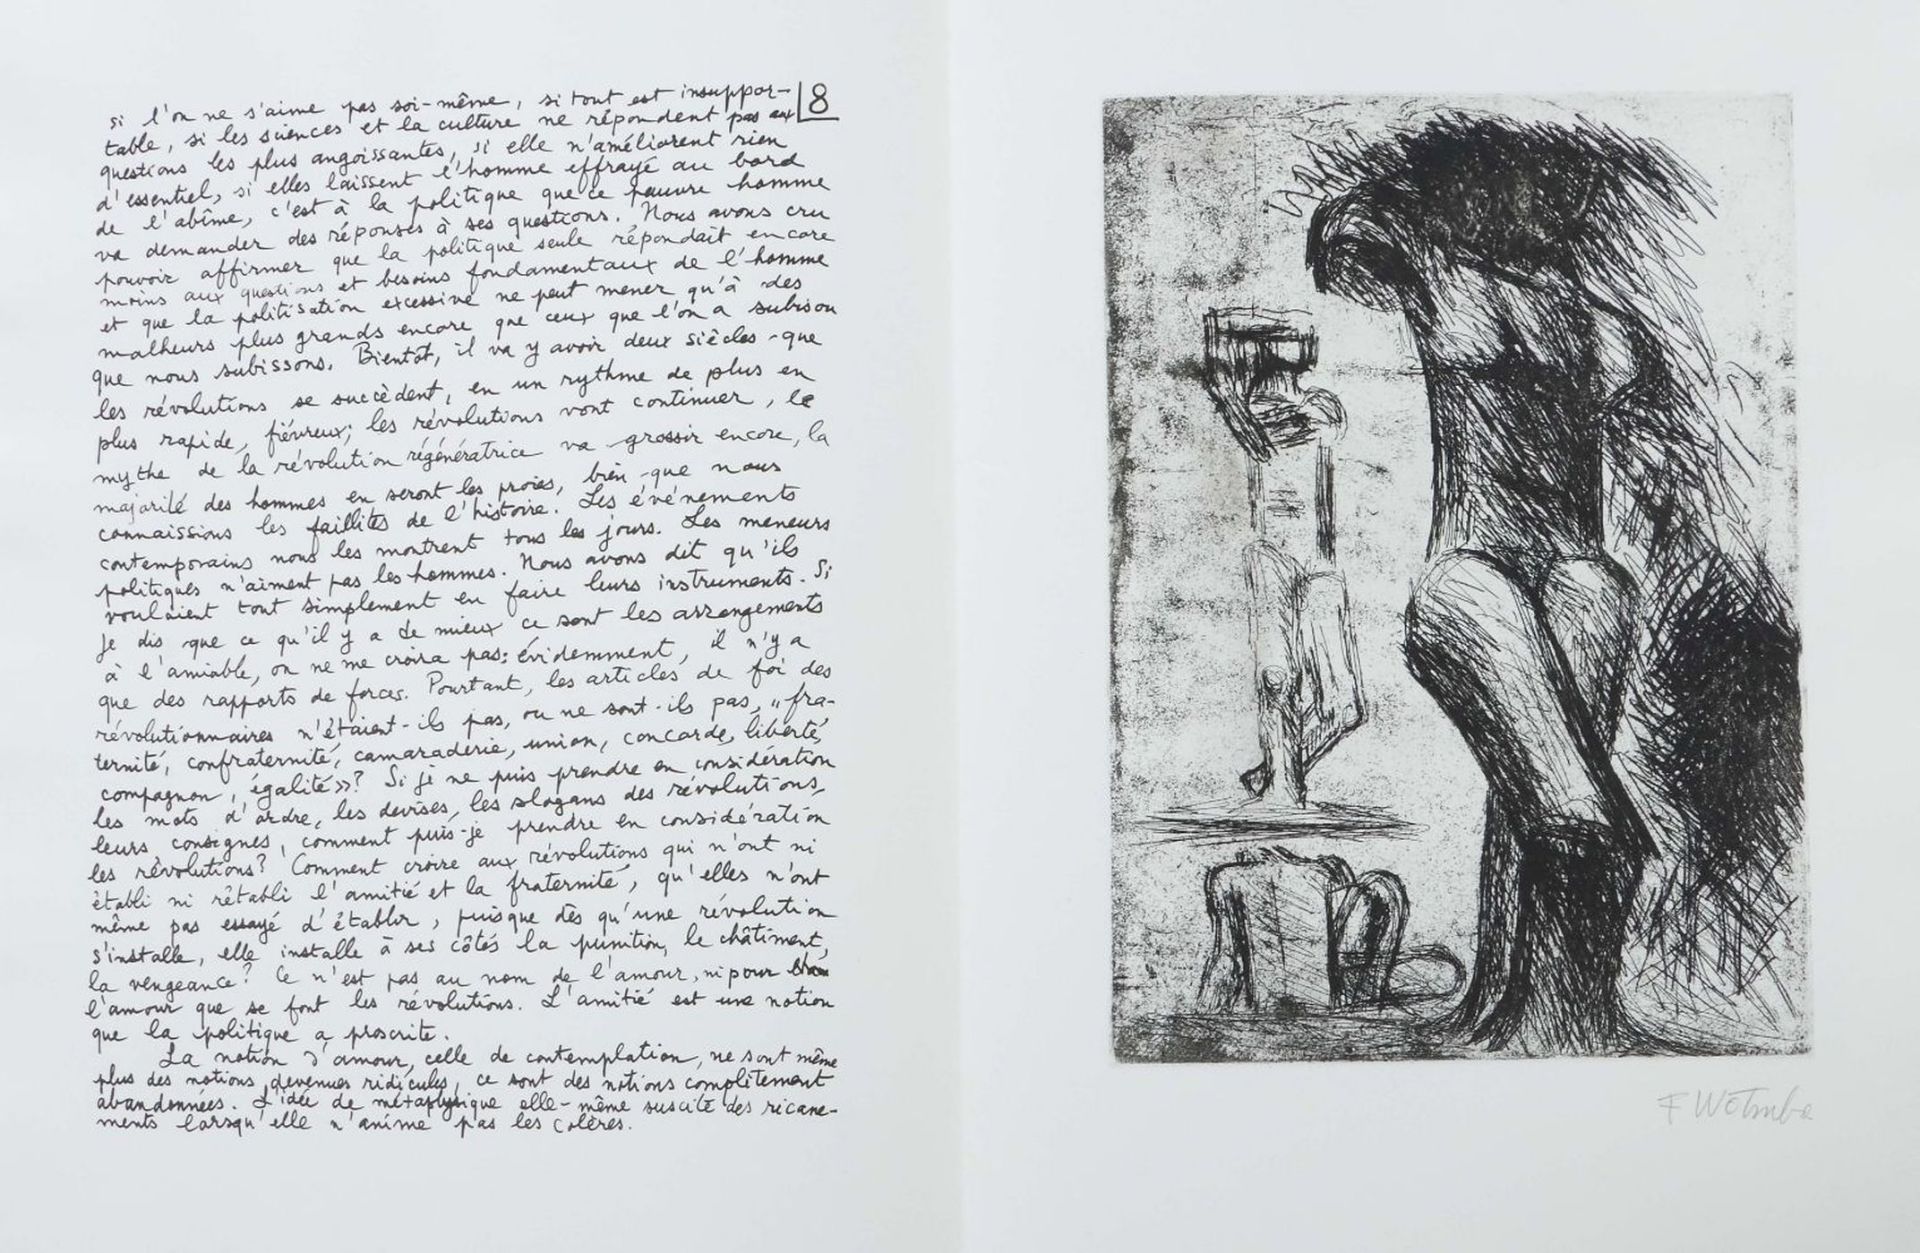 si l'on ne s'aime pas soi-même, si tout est insuppor-
8
table, si les sciences et la culture ne répondent pas aux
questions les plus angoissantes, si elle n'améliorent rien
d'essentiel, si elles laissent l'homme effrayé au bord
de l'abîme, c'est à la politique que ce pauvre homme
va demander des réponses à ses questions. Nous avons cru
pouvoir affirmer que la politique seule répondait encore
moins aux questions et besoins fondamentaux de l'homme
et que la politisation excessive ne peut mener qu'à des
malheurs plus grands encore que ceux que l'on a subis ou
que nous subissons. Bientôt, il va y avoir deux siècles que
les révolutions se succèdent, en un rythme de plus en
plus rapide, fiévreux; les révolutions vont continuer, le
mythe de la révolution régénératrice va grossir encore, la
majorité des hommes en seront les proies, bien que nous
connaissions les faillites de l'histoire. Les événements
contemporains nous les montrent tous les jours. Les meneurs
politiques n'aiment pas les hommes. Nous avons dit qu'ils
voulaient tout simplement en faire leurs instruments. Si
je dis que ce qu'il y a de mieux ce sont les arrangements
à l'amiable, on ne me croira pas: évidemment, il n'y a
que des rapports de forces. Pourtant, les articles de foi des
révolutionnaires n'étaient-ils pas, ou ne sont-ils pas, "fra-
ternité, confraternité, camaraderie, union, concorde, liberté,
compagnon, égalité»? Si je ne puis prendre en considération
les mots d'ordre, les devises, les slogans des révolutions,
leurs consignes, comment puis-je prendre en considération
les révolutions? Comment croire aux révolutions qui n'ont ni
établi ni rétabli l'amitié et la fraternité, qu'elles n'ont
même pas essayé d'établir, puisque dès qu'une révolution
s'installe, elle installe à ses côtés la punition, le châtiment,
la vengeance? Ce n'est pas au nom de l'amour, ni pour
l'amour que se font les révolutions. L'amitié est une notion
que la politique a proscrite.
La notion d'amour, celle de contemplation, ne sont même
plus des notions devenues ridicules, ce sont des notions complètement
abandonnées. L'idée de métaphysique elle-même suscite des ricane-
ments lorsqu'elle n'anime pas les colères.
F Wotruba